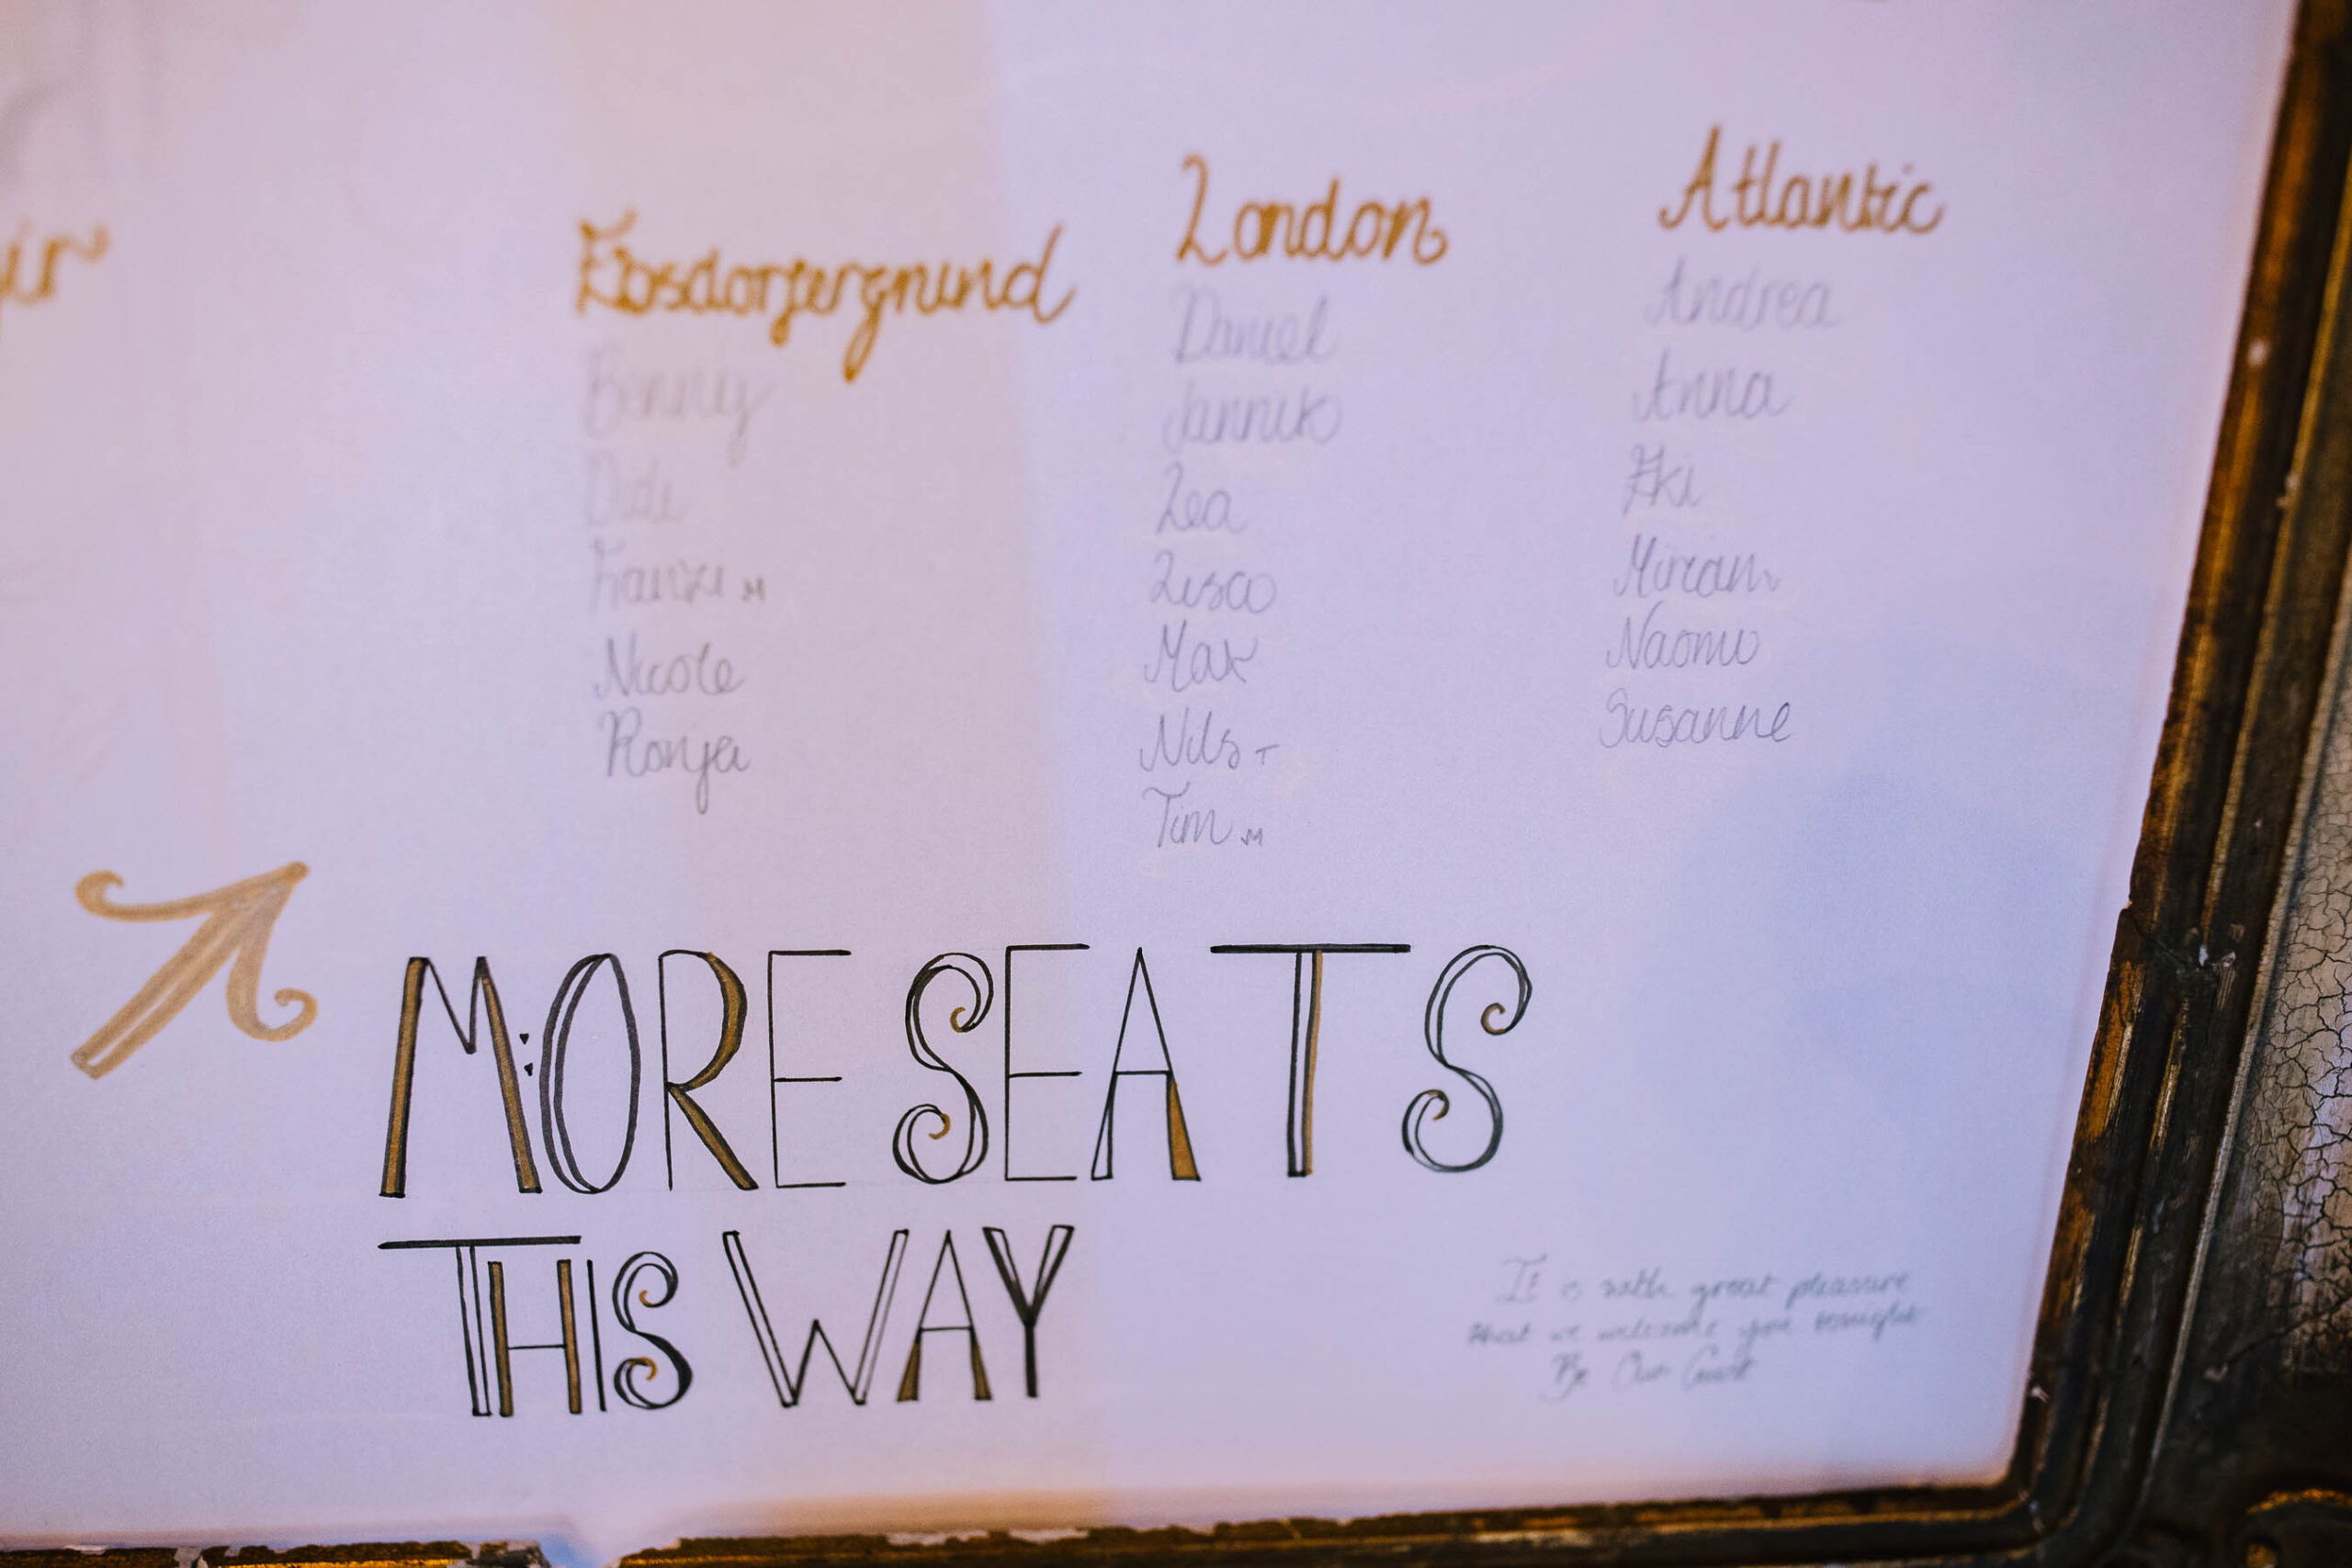 Ebsdorfergrund
Benny
Didi
Franzi M
Nicole
Ronja
London
Daniel
Jannik
Lea
Lisco
Max
Nils T
Tim M
Atlantic
Andrea
Anna
Eki
Miriam
Naomi
Susanne
MORE SEATS
THIS WAY
It is with great pleasure
that we welcome you tonight
Be Our Guest